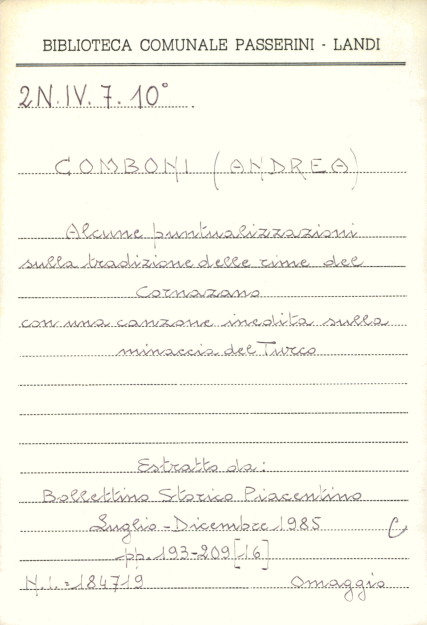 BIBLIOTECA COMUNALE PASSERINI - LANDI
2N.IV.7.10°
COMBONI (ANDREA)
Alcune puntualizzazioni
sulla tradizione delle rime del
Cornazano
con una canzone inedita sulla
minaccia del Turco
Estratto da:
Bollettino Storico Piacentino
Luglio - Dicembre 1985 C
pp. 193-209 [16]
N.i. = 184719 Omaggio